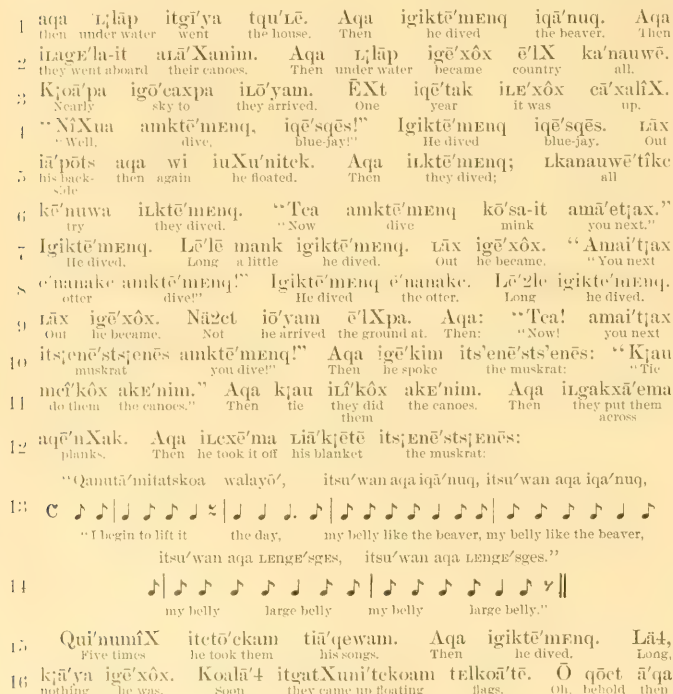 1 aqa ʟ¡lāp itgī'ya tqu'ʟē. Aqa igiktē'mᴇnq iqā'nuq. Aqa
then under water went the house. Then he dived the beaver. Then
2 iʟagᴇ'la-it aʟā'Xanim. Aqa ʟ¡lāp igē'xôx ē'lX ka'nauwē.
they went aboard their canoes. Then under water became country all.
3 K¡oā'pa igō'caxpa iʟō'yam. ĒXt iqē'tak iʟᴇ'xôx cā'xalîX.
Nearly sky to they arrived. One year it was up.
4 "NîXua amktē'mᴇnq, iqē'sqēs!" Igiktē'mᴇnq iqē'sqēs. ʟāx
"Well, dive, blue-jay!" He dived blue-jay. Out
5 iā'pōts aqa wi iuXu'nitck. Aqa iʟktē'mᴇnq; ʟkanauwē'tîkc
his back- then again he floated. Then they dived; all
side
6 kē'nuwa iʟktē'mᴇnq. "Tca amktē'mᴇnq kō'sa-it amā'et¡ax."
try they dived. "Now dive mink you next."
7 Igiktē'mᴇnq. Lē'lē mank igiktē'mᴇnq. ʟāx igē'xôx. "Amai't¡ax
He dived. Long a little he dived. Out he became. "You next
8 ē'nanakc amktē'mᴇnq!" Igiktē'mᴇnq ē'nanakc. Lē'2lē igiktē'mᴇnq.
otter dive!" He dived the otter. Long he dived.
9 ʟāx igē'xôx. Nä2ct iō'yam ē'lXpa. Aqa: "Tca! amai't¡ax
Out he became. Not he arrived the ground at. Then: "Now! you next
10 its¡enē'sts¡enēs amktē'mᴇnq!" Aqa igē'kim its'enē'sts'enēs: "K¡au
muskrat you dive!" Then he spoke the muskrat: "Tie
11 mcî'kôx akᴇ'nim." Aqa k¡au iʟî'kôx akᴇ'nim. Aqa iʟgakxā'ema
do them the canoes." Then tie they did the canoes. Then they put them
them across
12 aqē'nXak. Aqa iʟcxē'ma ʟiā'k¡ētē its¡ᴇnē'sts¡ᴇnēs:
planks. Then he took it off his blanket the muskrat:
"Qanutā'mitatskoa walayō', itsu'wan aqa iqā'nuq, itsu'wan aqa iqa'nuq,
13
"I begin to lift it the day, my belly like the beaver, my belly like the beaver,
itsu'wan aqa ʟᴇngᴇ'sgᴇs, itsu'wan aqa ʟᴇngᴇ'sgᴇs."
14
my belly large belly my belly large belly."
15 Qui'numîX itctō'ckam tiā'qewam. Aqa igiktē'mᴇnq. Lä4,
Five times he took them his songs. Then he dived. Long,
16 k¡ā'ya igē'xôx. Koalā'4 itgatXuni'tckoam tᴇlkoā'tē. Ō qōct ā'qa
nothing he was. Soon they came up floating flags. Oh, behold then